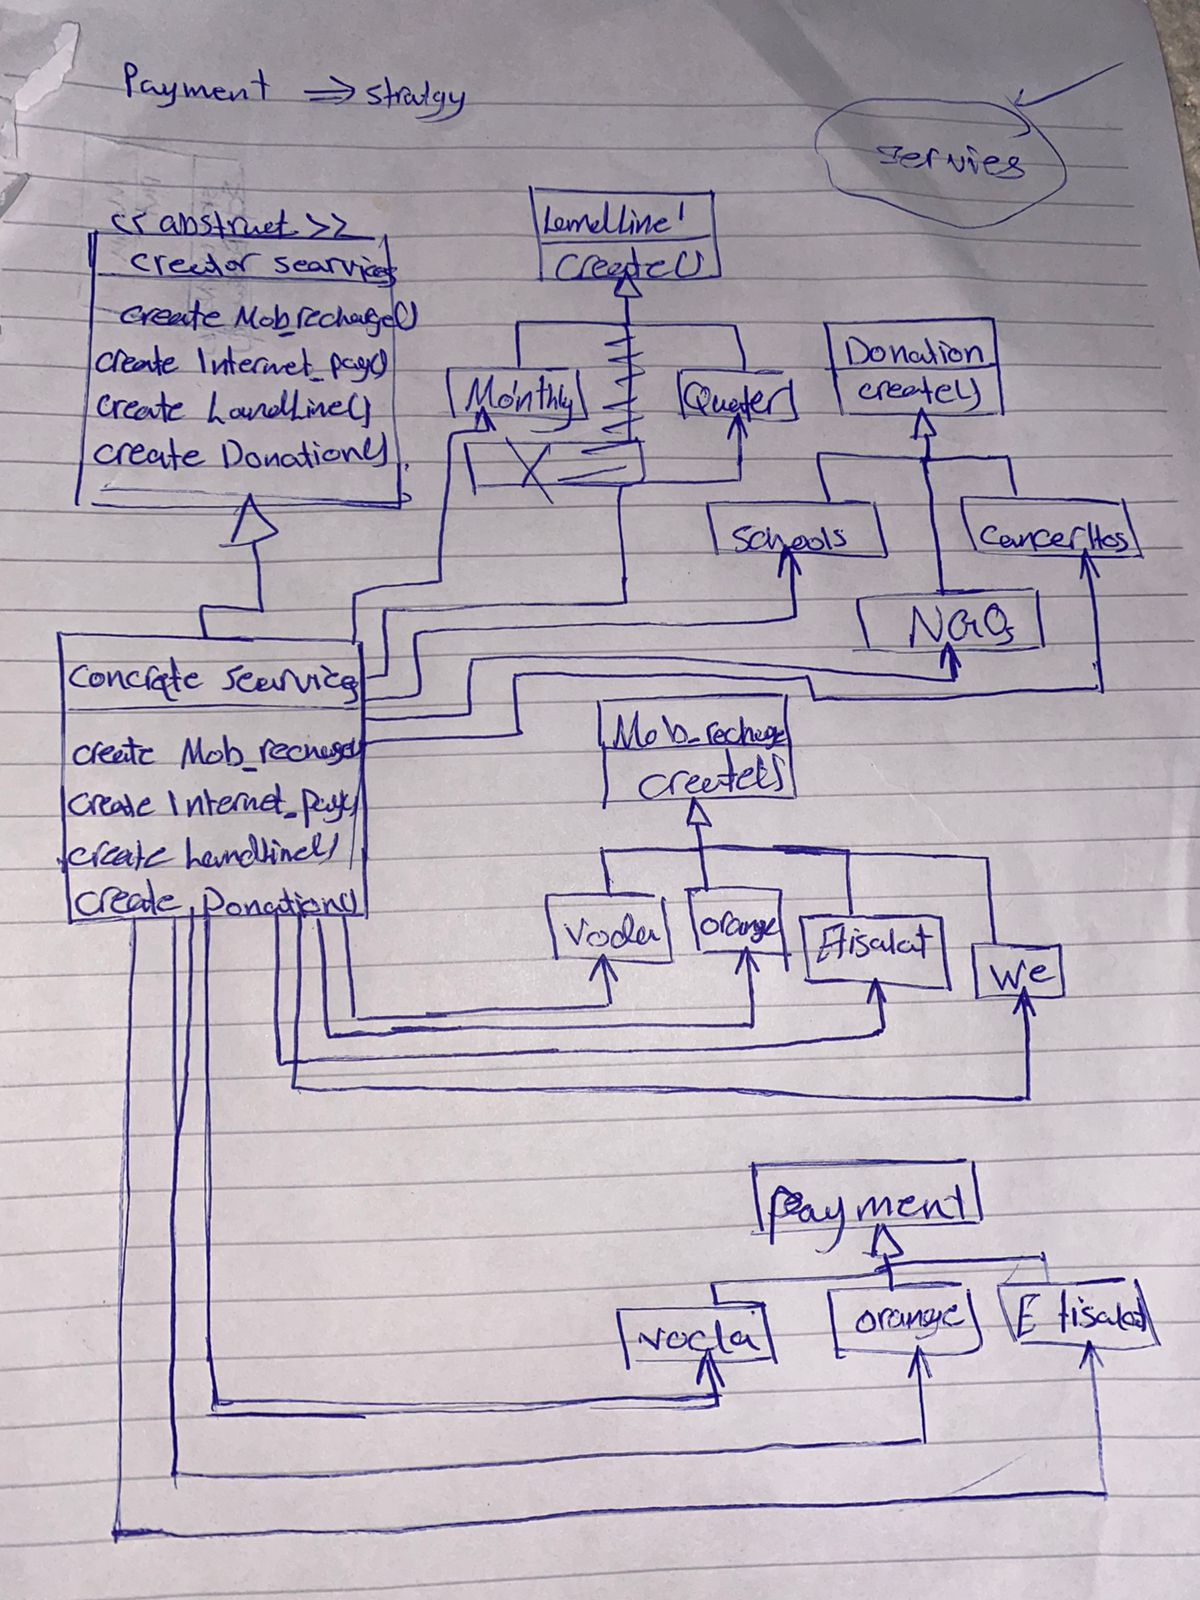 Payment => stratgy
servies
<< abstruct >>
creator searvices
create Mob_recharge()
create Internet_pay()
create LandLine()
create Donation()
Landline
create()
Monthly
Quater
Donation
create()
Schools
CancerHos
NGOs
Concrate searvice
create Mob_recharge()
create Internet_pay()
create Landline()
create Donation()
Mob_recharge
create()
Voda
orange
Etisalat
We
payment
voda
orange
Etisalat